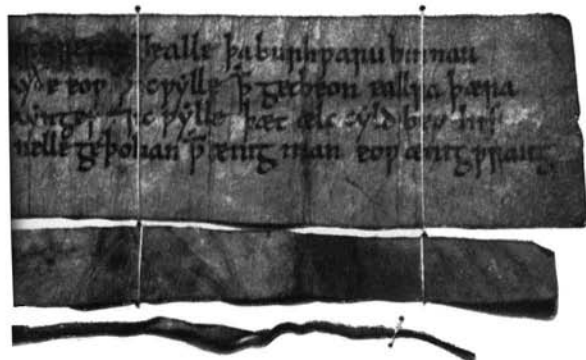 ealle þa burhƿaru binnan
kyðe eoƿ ꝥ ic ƿylle ꝥ get beon eallra þæra
kynges ⁊ ic ƿylle þæt ælc cyld beo his
nelle geþolian ꝥ ænig man eoƿ ænig ƿrang